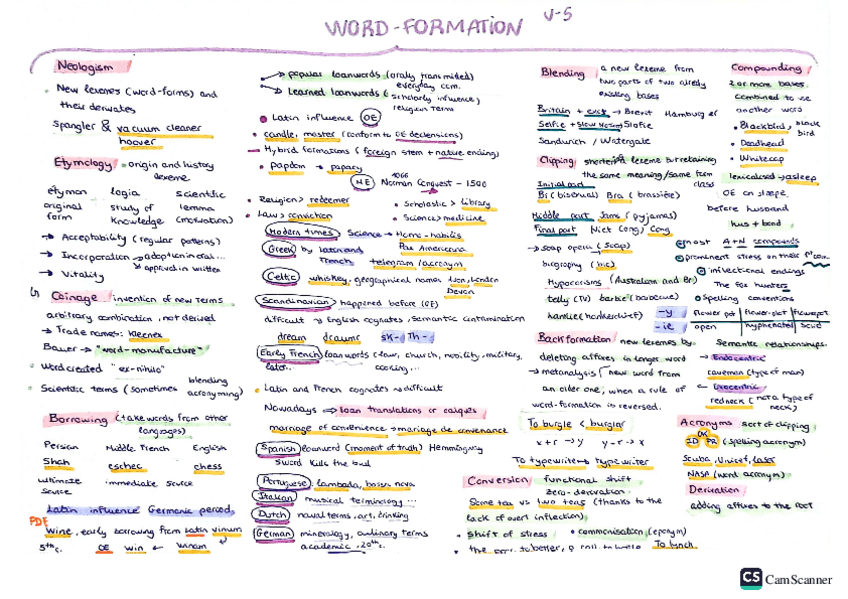 WORD-FORMATION U-5
Neologism
New lexemes (word-forms) and
their derivates
Spangler & vacuum cleaner
hoover
Etymology = origin and history
lexeme
etymon logia scientific
original study of lemma
form knowledge (motivation)
→ Acceptability (regular patterns)
→ Incorporation → adoption in col...
→ approved in written
→ Vitality
Coinage invention of new terms
arbitrary combination, not derived
→ Trade names: Kleenex
Bauer → "word-manufacture"
Word created "ex-nihilo"
blending
Scientific terms (sometimes acronyming)
Borrowing (take words from other
languages)
Persian Middle French English
Shah eschec chess
ultimate immediate source
source
Latin influence Germanic period,
PDE wine, early borrowing from Latin vinum
5th c. OE win ← vinum
→ popular loanwords (orally transmitted)
everyday com.
→ Learned loanwords (scholarly influence)
religious terms
Latin influence OE
candle, master (conform to OE declensions)
Hybrid formations (foreign stem + native ending)
Papdom → papacy
ME 1066 Norman Conquest - 1500
Religion > redeemer
Scholastic > library
Law > conviction
Science > medicine
Modern times Science → Homo-habilis
Greek by Latin and Pax Americana
French telegram/acronym
Celtic whiskey, geographical names London
Devon
Scandinavian happened before (OE)
difficult → English cognates, semantic contamination
dream draumr sk- Th-
Early French loanwords (law, church, nobility, military,
later... cooking...
Latin and French cognates → difficult
Nowadays ⇒ loan translations or calques
marriage of convenience → mariage de convenance
Spanish loanword (moment of truth) Hemmingway
Sword kills the bull
Portuguese: lambada, bossa nova
Italian musical terminology...
Dutch naval terms, art, drinking
German mineralogy, culinary terms
academic, 20th c.
Blending a new lexeme from
two parts of two
existing bases
Britain + exit → Brexit Hamburger
Selfie + slow motion Slofie
Sandwich / Watergate
Clipping shortening lexeme but retaining
the same meaning/same form class
Initial part
Bi (bisexual) Bra (brassière)
Middle part Jams (pyjamas)
Final part Viet Cong) Cong
→ soap opera (Soap)
biography (bio)
Hypocorisms (Australian and Br)
telly (TV) barbie (barbecue)
hankie (handkerchief) -y
-ie
Backformation new lexemes by
deleting affixes in longer word
→ metanalysis new word from
an older one; when a rule of
word-formation is reversed.
To burgle < burglar
x+r → y y-r → x
To typewrite → typewriter
Conversion functional shift
zero-derivation
Some tea vs two teas (thanks to the
lack of overt inflection)
Shift of stress commonisation (eponym)
To lynch
Compounding
2 or more bases
combined to use
another word
Blackbird, black
bird
Deadhead
Whitecap
lexicalised → asleep
OE on slæpe
before husband
hus + bond
most A+N compounds
prominent stress on their 1st com.
inflectional endings
The fox hunters
Spelling conventions
flower pot flower-pot flowerpot
open hyphenated solid
Semantic relationships
→ Endocentric
caveman (type of man)
← Exocentric
redneck (not a type of
neck)
Acronyms sort of clipping
OK
ID PR (spelling acronym)
Scuba, Unicef, laser
NASA (word acronym)
Derivation
adding affixes to the root
CS CamScanner